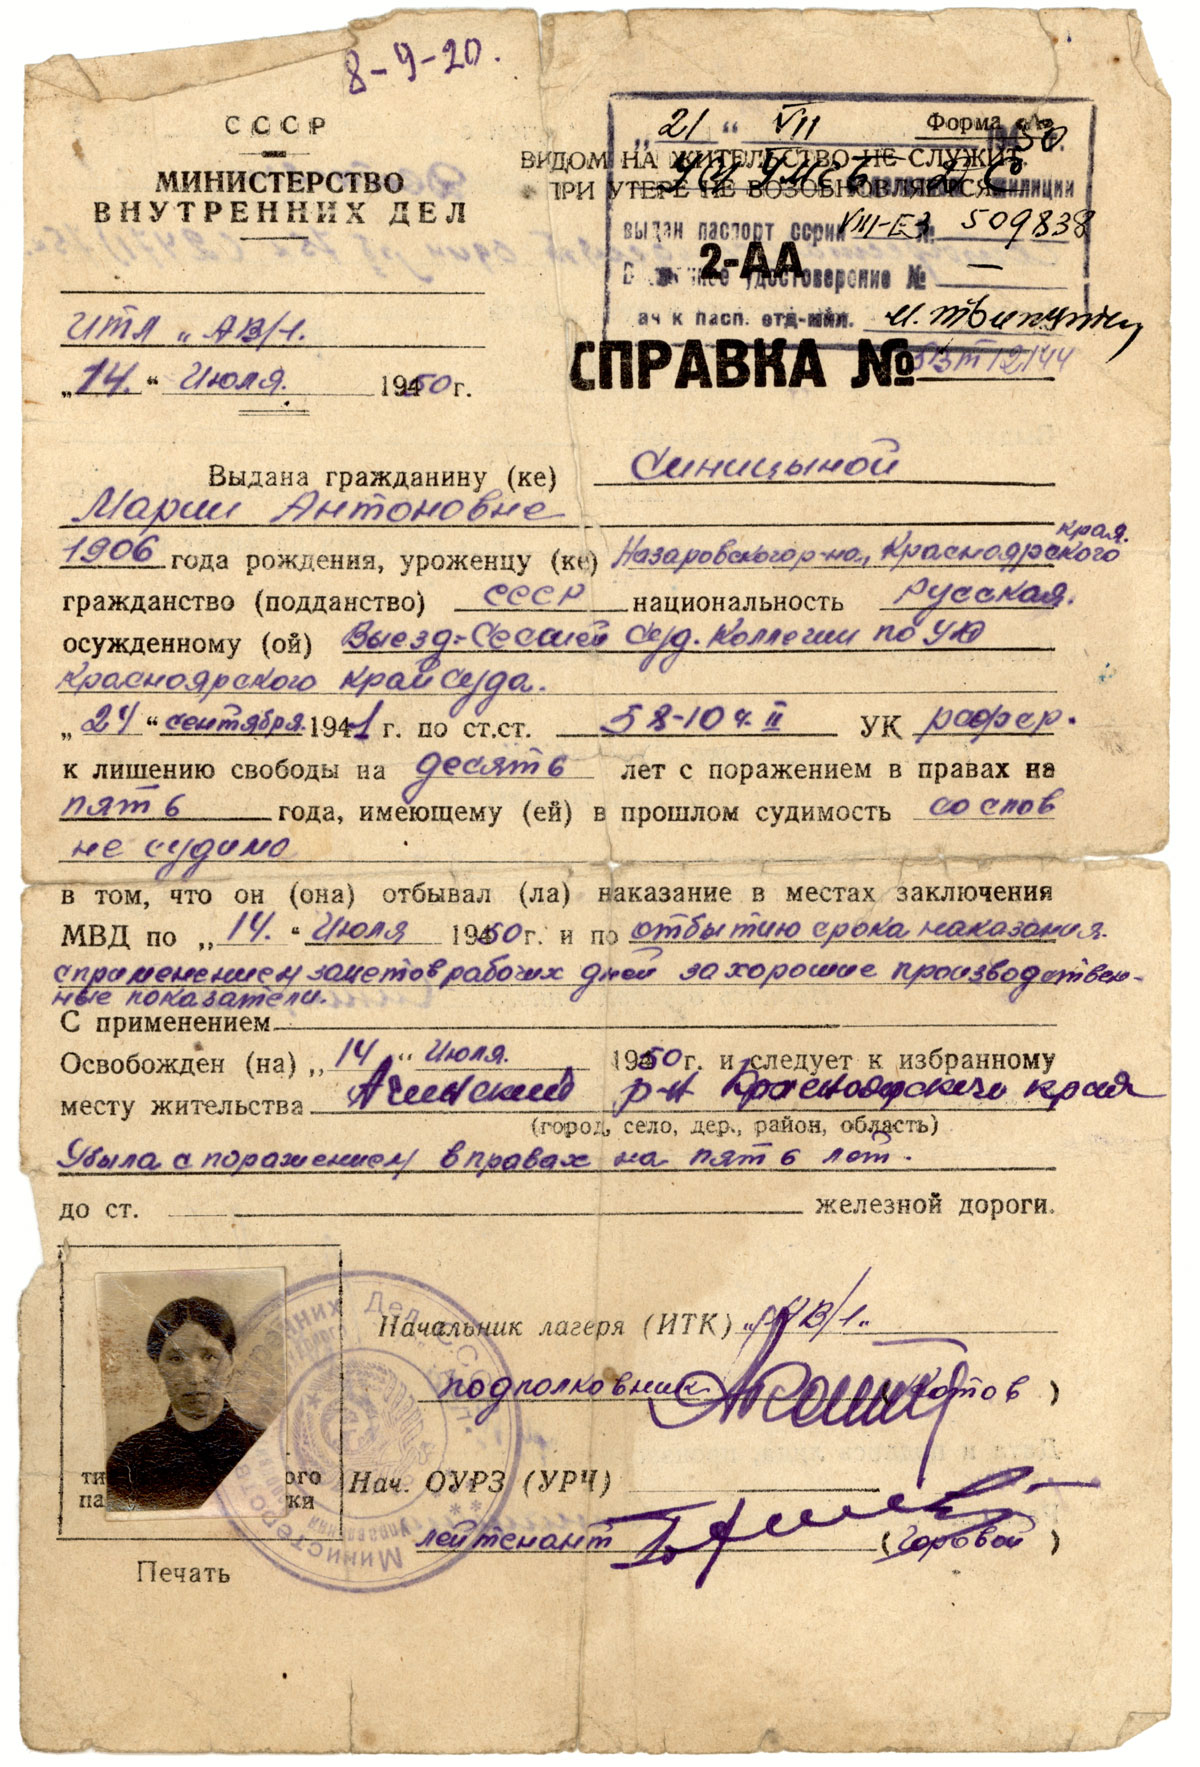 8-9-20.
СССР
МИНИСТЕРСТВО
ВНУТРЕННИХ ДЕЛ
ИТЛ „АВ/1.
„14.“ Июля. 1950 г.
„21“ VII 50 г.
Форма
ВИДОМ НА ЖИТЕЛЬСТВО НЕ СЛУЖИТ.
ПРИ УТЕРЕ НЕ ВОЗОБНОВЛЯЕТСЯ
милиции
выдан паспорт серии VIII-ЕЗ № 509838
2-АА
удостоверение № —
нач к пасп. отд-мил.
СПРАВКА №
Выдана гражданину (ке) Синицыной
Марии Антоновне
1906 года рождения, уроженцу (ке) Назаровского р-на, Красноярского края.
гражданство (подданство) СССР национальность Русская.
осужденному (ой) Выезд-Сессией Суд. Коллегии по УД
Красноярского крайсуда.
„24“ сентября 1941 г. по ст.ст. 58-10 ч. II УК РСФСР.
к лишению свободы на десять лет с поражением в правах на
пять года, имеющему (ей) в прошлом судимость со слов
не судима
в том, что он (она) отбывал (ла) наказание в местах заключения
МВД по „14.“ Июля 1950 г. и по отбытию срока наказания.
с применением зачетов рабочих дней за хорошие производствен-
ные показатели.
С применением
Освобожден (на) „14“ Июля. 1950 г. и следует к избранному
месту жительства Ачинский р-н Красноярского края
(город, село, дер., район, область)
Убыла с поражением в правах на пять лет.
до ст. железной дороги.
Начальник лагеря (ИТК) „АВ/1“
подполковник
Нач. ОУРЗ (УРЧ)
лейтенант (Горовой)
Министерство Внутренних Дел СССР
Печать